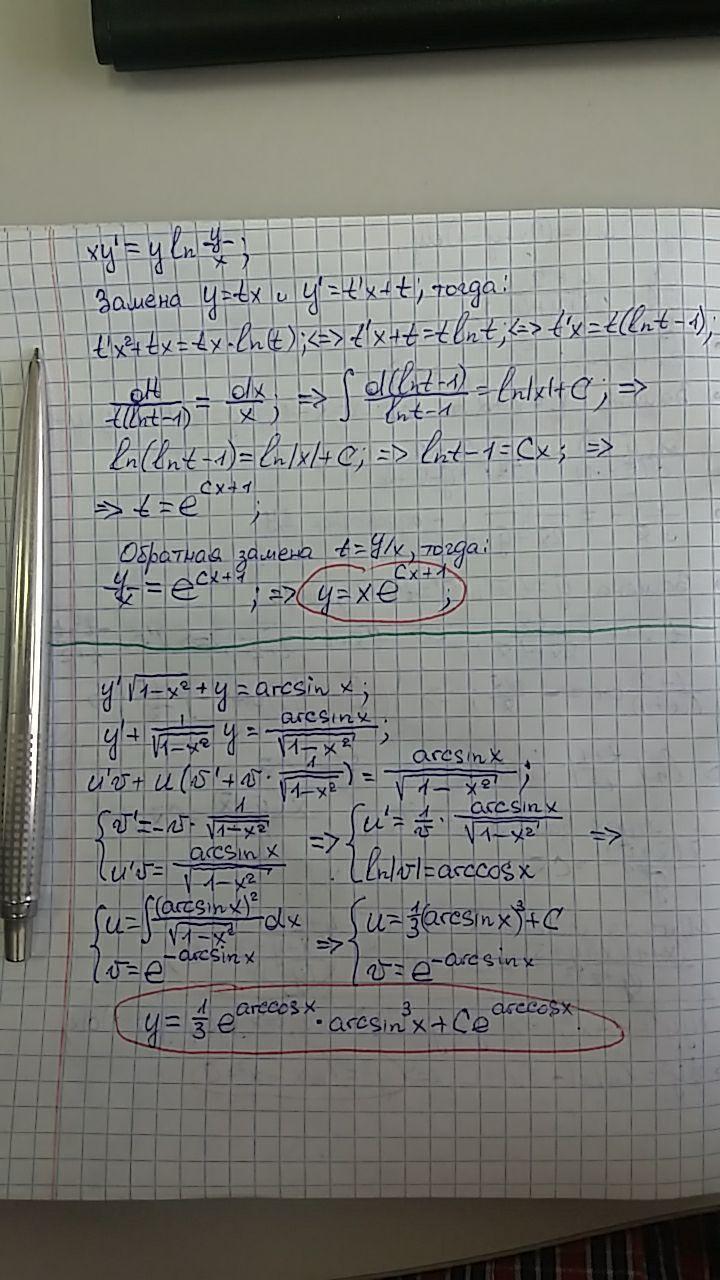 xy' = y ln y/x ;
Замена y=tx и y'=t'x+t, тогда:
t'x²+tx=tx·ln(t);<=> t'x+t=tlnt;<=> t'x=t(lnt-1);
dt/t(lnt-1) = dx/x ; => ∫ d(lnt-1)/lnt-1 = ln|x|+C; =>
ln(lnt-1)=ln|x|+C; => lnt-1=Cx; =>
=> t=e^(Cx+1);
Обратная замена t=y/x, тогда:
y/x = e^(Cx+1); => y=xe^(Cx+1);
y'√(1-x²) + y = arcsin x;
y' + 1/√(1-x²) y = arcsinx/√(1-x²);
u'v + u(v'+v· 1/√(1-x²)) = arcsinx/√(1-x²);
{ v'=-v· 1/√(1-x²) => { u'= 1/v · arcsinx/√(1-x²) =>
{ u'v= arcsin x/√(1-x²) { ln|v|=arccosx
{ u=∫ (arcsinx)²/√(1-x²) dx => { u= 1/3 (arcsinx)³+C
{ v=e^(-arcsinx) { v=e^(-arcsinx)
y= 1/3 e^(arccosx) · arcsin³x + Ce^(arccosx)